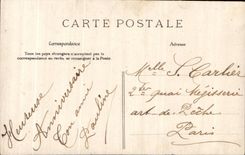 CARTE POSTALE
Correspondance
Tous les pays étrangers n'acceptent pas la
correspondance au recto, se renseigner à la Poste
Adresse
Heureuse
Anniversaire
Ton amie
Pauline
Mlle S. Carlier
2ter quai Mégisserie
art. de Pêche
Paris